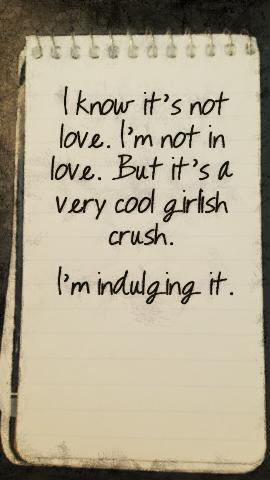 I know it's not
love. I'm not in
love. But it's a
very cool girlish
crush.
I'm indulging it.